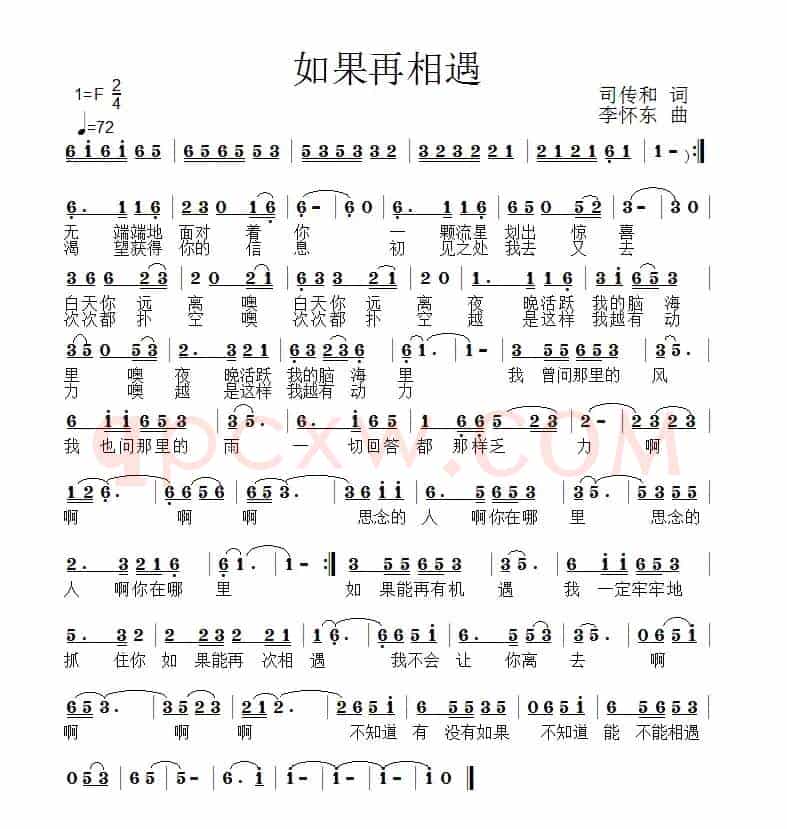 如果再相遇
1=F 2/4
司传和 词
♩=72
李怀东 曲
6i6i 65 | 656553 | 353532 | 323221 | 212161 | 1- ):|
6. 116 | 230 16 | 6- | 60 | 6. 116 | 250 52 | 3- | 30 |
无 端端地 面对 着 你 一 颗流星 划出 惊 喜
渴 望获得 你的 信 息 初 见之处 我去 又 去
366 23 | 20 021 | 366 521 | 20 | 1. 116 | 3i 653 |
白天你 远 离 噢 白天你 远 离 夜 晚活跃 我的脑 海
次次都 扑 空 噢 次次都 扑 空 越 是这样 我越有 动
350 53 | 2. 321 | 63236 | 61. | 1- | 3 55653 | 35. |
里 噢 夜 晚活跃 我的脑 海 里 我 曾问那里的 风
力 噢 越 是这样 我越有 动 力
6 ii653 | 35. | 6. i65 | 1 665 23 | 2- | 2323 |
我 也问那里的 雨 一 切回答 都 那样乏 力 啊
qpcxw.COM
126. | 6656 | 653. | 36ii | 6. 5653 | 35. | 5355 |
啊 啊 啊 思念的 人 啊你在哪 里 思念的
2. 3216 | 61. | 1- :| 3 55653 | 35. | 6 ii653 |
人 啊你在哪 里 如 果能再有机 遇 我 一定牢牢地
5. 32 | 2 232 21 | 16. | 665i | 6. 553 | 35. | 065i |
抓 住你 如 果能再 次相 遇 我不会 让 你离 去 啊
653. | 3523 | 212. | 265i | 6 5535 | 065i | 6 5356 |
啊 啊 啊 不知道 有 没有如果 不知道 能 不能相遇
053 | 65 | 5- | 6. i | i- | i- | i0 |